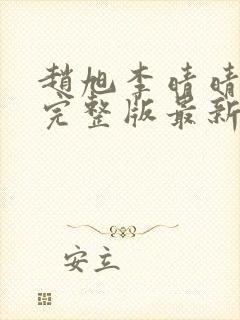 趙旭李晴晴
完整版最新
安立